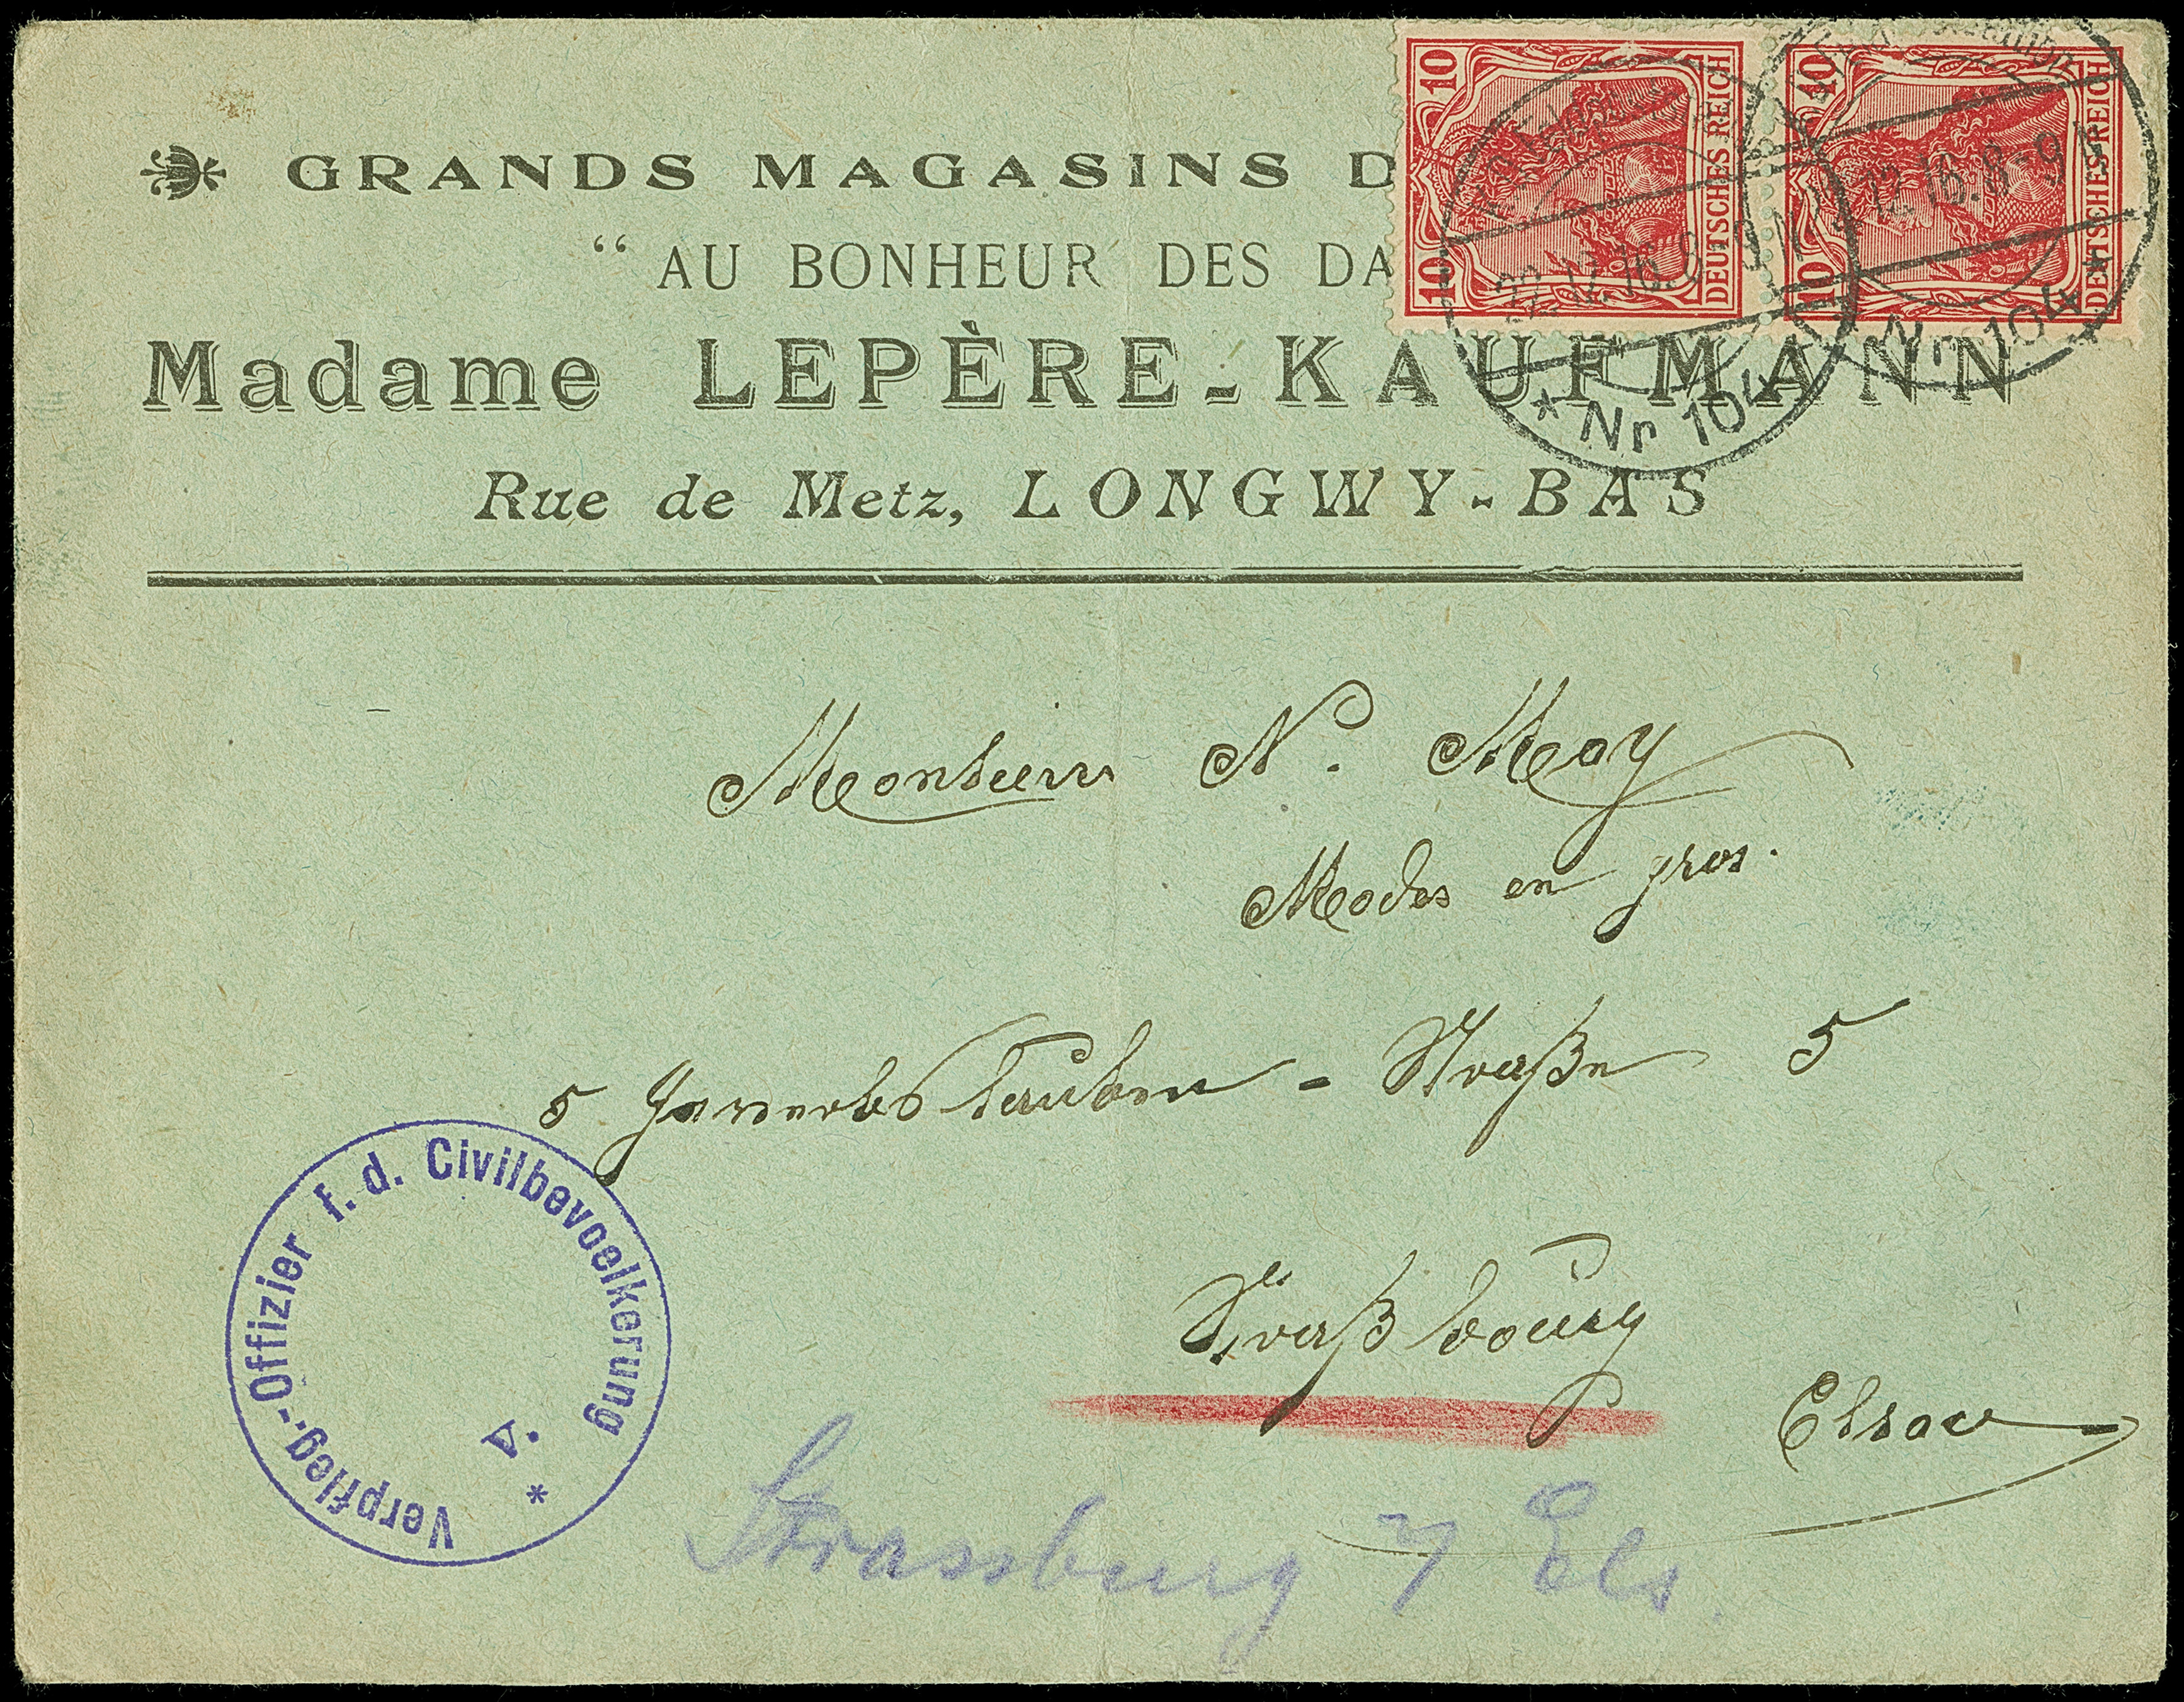 GRANDS MAGASINS D
“ AU BONHEUR DES DA
Madame LEPÈRE-KAUFMANN
Rue de Metz, LONGWY-BAS
10 10 DEUTSCHES REICH
10 10 DEUTSCHES REICH
22.12.16.8-9 V
* Nr 104
12.16.8-9 V
* Nr 104
Monsieur N. Moy
Modes en gros.
5 - Straße 5
Straßbourg
Elsau
Verpfleg.-Offizier f. d. Civilbevoelkerung
V.
*
Strassburg i/ Els.